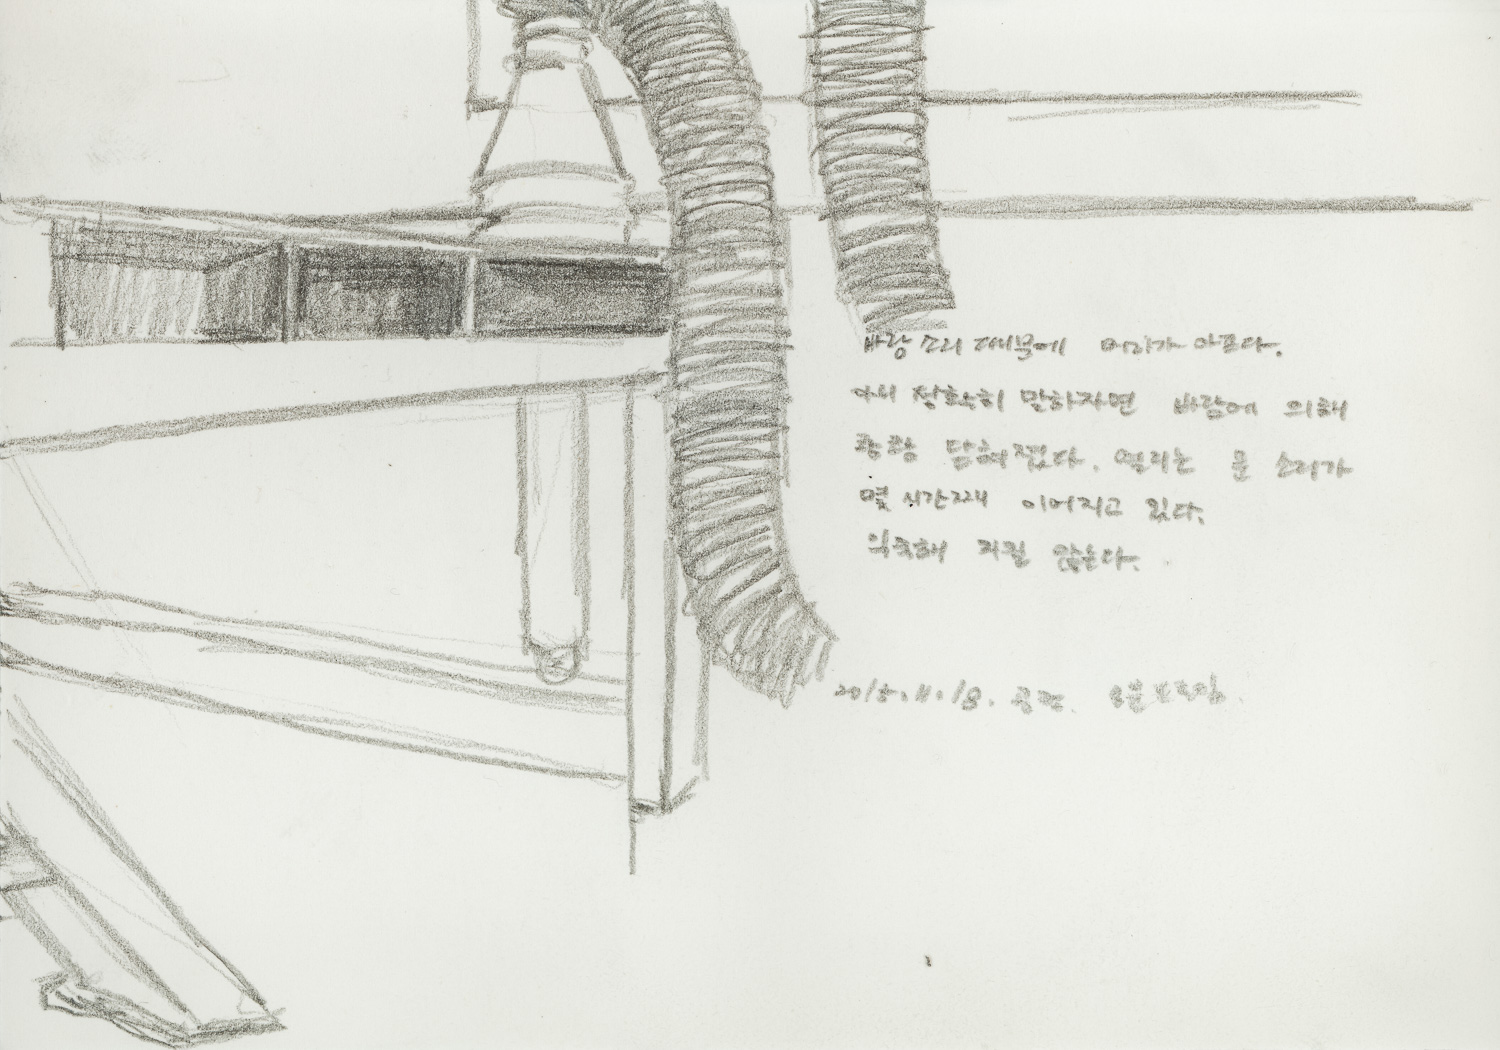 바람 소리 때문에 머리가 아프다.
더 정확히 말하자면 바람에 의해
쾅쾅 닫혀졌다. 열리는 문 소리가
몇 시간째 이어지고 있다.
익숙해 지질 않는다.
2015.11.18. 공판.